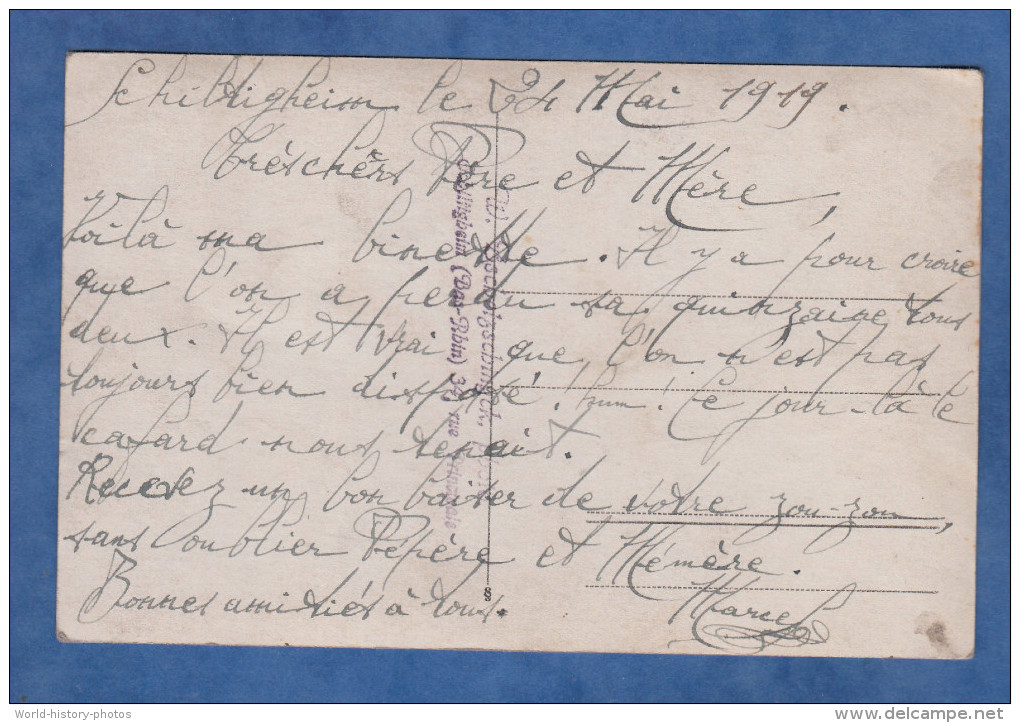 Schiltigheim le 24 Mai 1919.
Très chers Père et Mère,
Voilà ma binette. Il y a pour croire
que l'on a perdu sa quinzaine tous
deux. Il est vrai que l'on n'est pas
toujours bien disposé! hum! Ce jour-là le
cafard nous tenait.
Recevez un bon baiser de votre zou-zou,
sans oublier Pépère et Mémère.
Bonnes amitiés à tous.
Marcel
(Bas-Rhin) 34, rue Principale
World-history-photos
http://www.delcampe.net